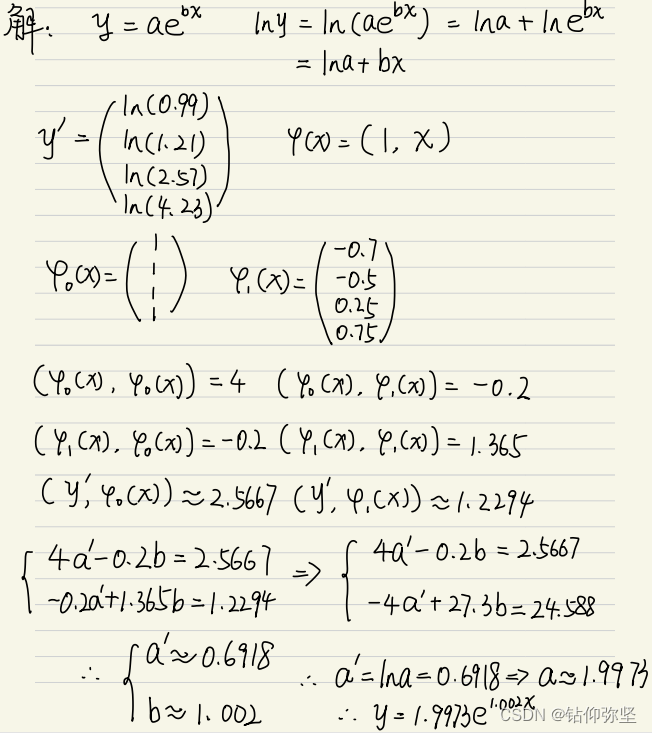 解: y = ae^{bx}   ln y = ln(ae^{bx}) = lna + lne^{bx}
= lna + bx
y' = ( ln(0.99) ln(1.21) ln(2.57) ln(4.23) )   φ(x) = (1, x)
φ₀(x) = ( 1 1 1 1 )   φ₁(x) = ( -0.7 -0.5 0.25 0.75 )
(φ₀(x), φ₀(x)) = 4   (φ₀(x), φ₁(x)) = -0.2
(φ₁(x), φ₀(x)) = -0.2   (φ₁(x), φ₁(x)) = 1.365
(y', φ₀(x)) ≈ 2.5667   (y', φ₁(x)) ≈ 1.2294
{ 4a' - 0.2b = 2.5667   => { 4a' - 0.2b = 2.5667
-0.2a' + 1.365b = 1.2294   -4a' + 27.3b = 24.588
∴ { a' ≈ 0.6918   ∴ a' = lna = 0.6918 => a ≈ 1.9973
b ≈ 1.002   ∴ y = 1.9973e^{1.002x}
CSDN @钻仰弥坚